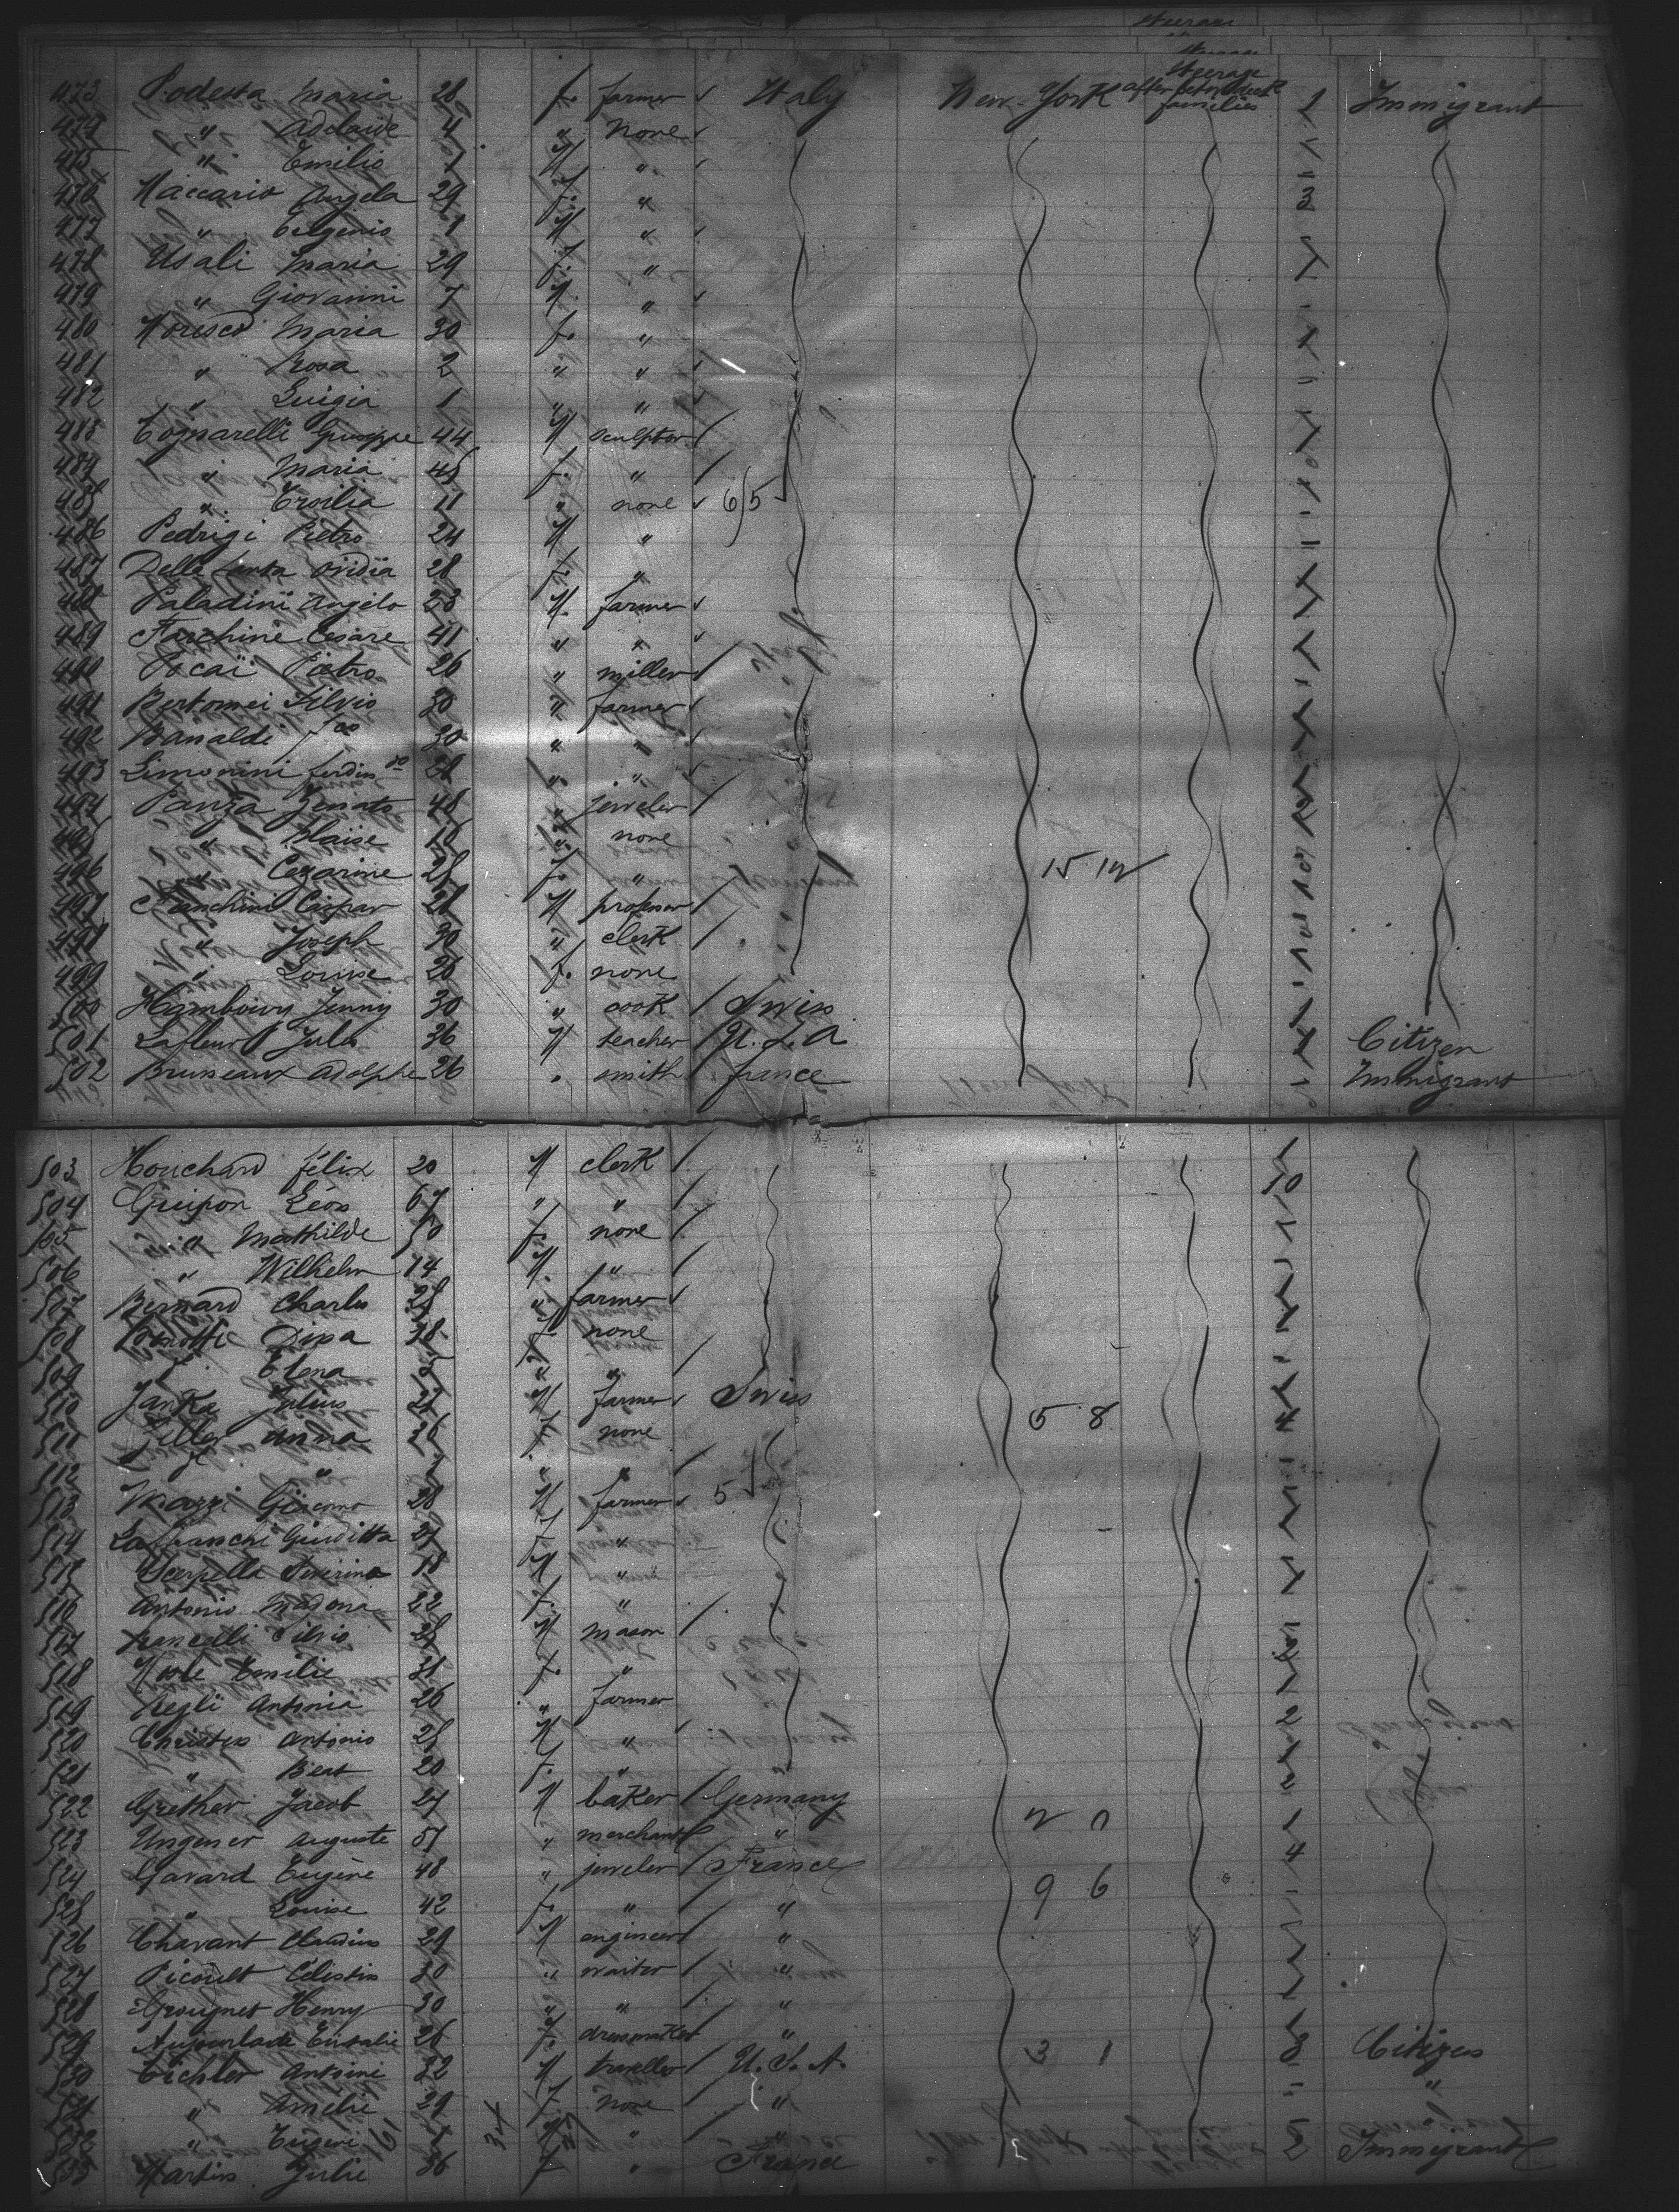 Steerage
Steerage
473 Podesta Maria 28 f. farmer Italy New-York Steerage after between deck families 1 Immigrant
474 " Adelaide 4 " none
475 " Emilio 1 M "
476 Maccario Angela 29 f. " 3
477 " Eugenio 1 M "
478 Usali Maria 29 f. "
479 " Giovanni 7 M. "
480 Moresco Maria 30 f. "
481 " Rosa 2 " "
482 " Luigia 1 " "
483 Tognarelli Giuseppe 44 M sculptor
484 " Maria 45 f. "
485 " Ersilia 11 " none 6/5
486 Pedrigi Pietro 24 M "
487 Della Santa Ovidia 28 f. "
488 Paladini Angelo 23 M. farmer
489 Farchine Cesare 41 " "
490 Pocaï Pietro 26 " miller
491 Bertomei Silvio 30 " farmer
492 Banaldi fco 30 " "
493 Limonini ferdindo 28 " "
494 Panza Zenato 48 " jeweler
495 " Blaise 18 " none
496 " Cezarine 25 f. " 15 12
497 Fanchini Caspar 28 M professor
498 " Joseph 30 " clerk
499 " Louise 26 f. none
500 Jenny 30 " cook Swiss
501 Lafleur Jules 36 M teacher U.S.A Citizen
502 Bruneaux Adolphe 26 " smith france Immigrant
503 Houchard félix 20 M clerk
504 Guipon Léon 67 " " 10
505 " Mathilde 50 f. none
506 " Wilhelm 14 M. "
507 Bernard Charles 25 " farmer
508 Dina 38 f. none
509 " Elena 5 " "
510 Janka Julius 25 M farmer Swiss 5 8
511 Ziller Anna 36 f none 4
512 " " 7 " "
513 Mazzi Giacomo 28 M farmer 5
514 Lafranchi Giuditta 27 f "
515 Scerpella Severina 18 M "
516 Antonio Madona 22 f. "
517 Francelli Silvio 25 M mason
518 Emilie 31 f. "
519 Regli Antonia 26 " farmer
520 Christen Antonio 25 M " 2
521 " Beat 20 f. "
522 Grether Jacob 27 M baker Germany 2 0
523 Ungener Auguste 51 " merchant "
524 Gavard Eugène 48 " jeweler France 9 6 4
525 " Louise 42 f. " "
526 Chavant Claudius 29 M engineer "
527 Picoult Célestin 30 " waiter "
528 Grougnet Henry 30 " " "
529 26 f. dressmaker "
530 Eichler Antoine 32 M traveller U.S.A. 3 1 3 Citizen
531 " Amélie 29 f. none " "
532 " Eugene 1 M "
533 Martin Julie 36 f " France Immigrant